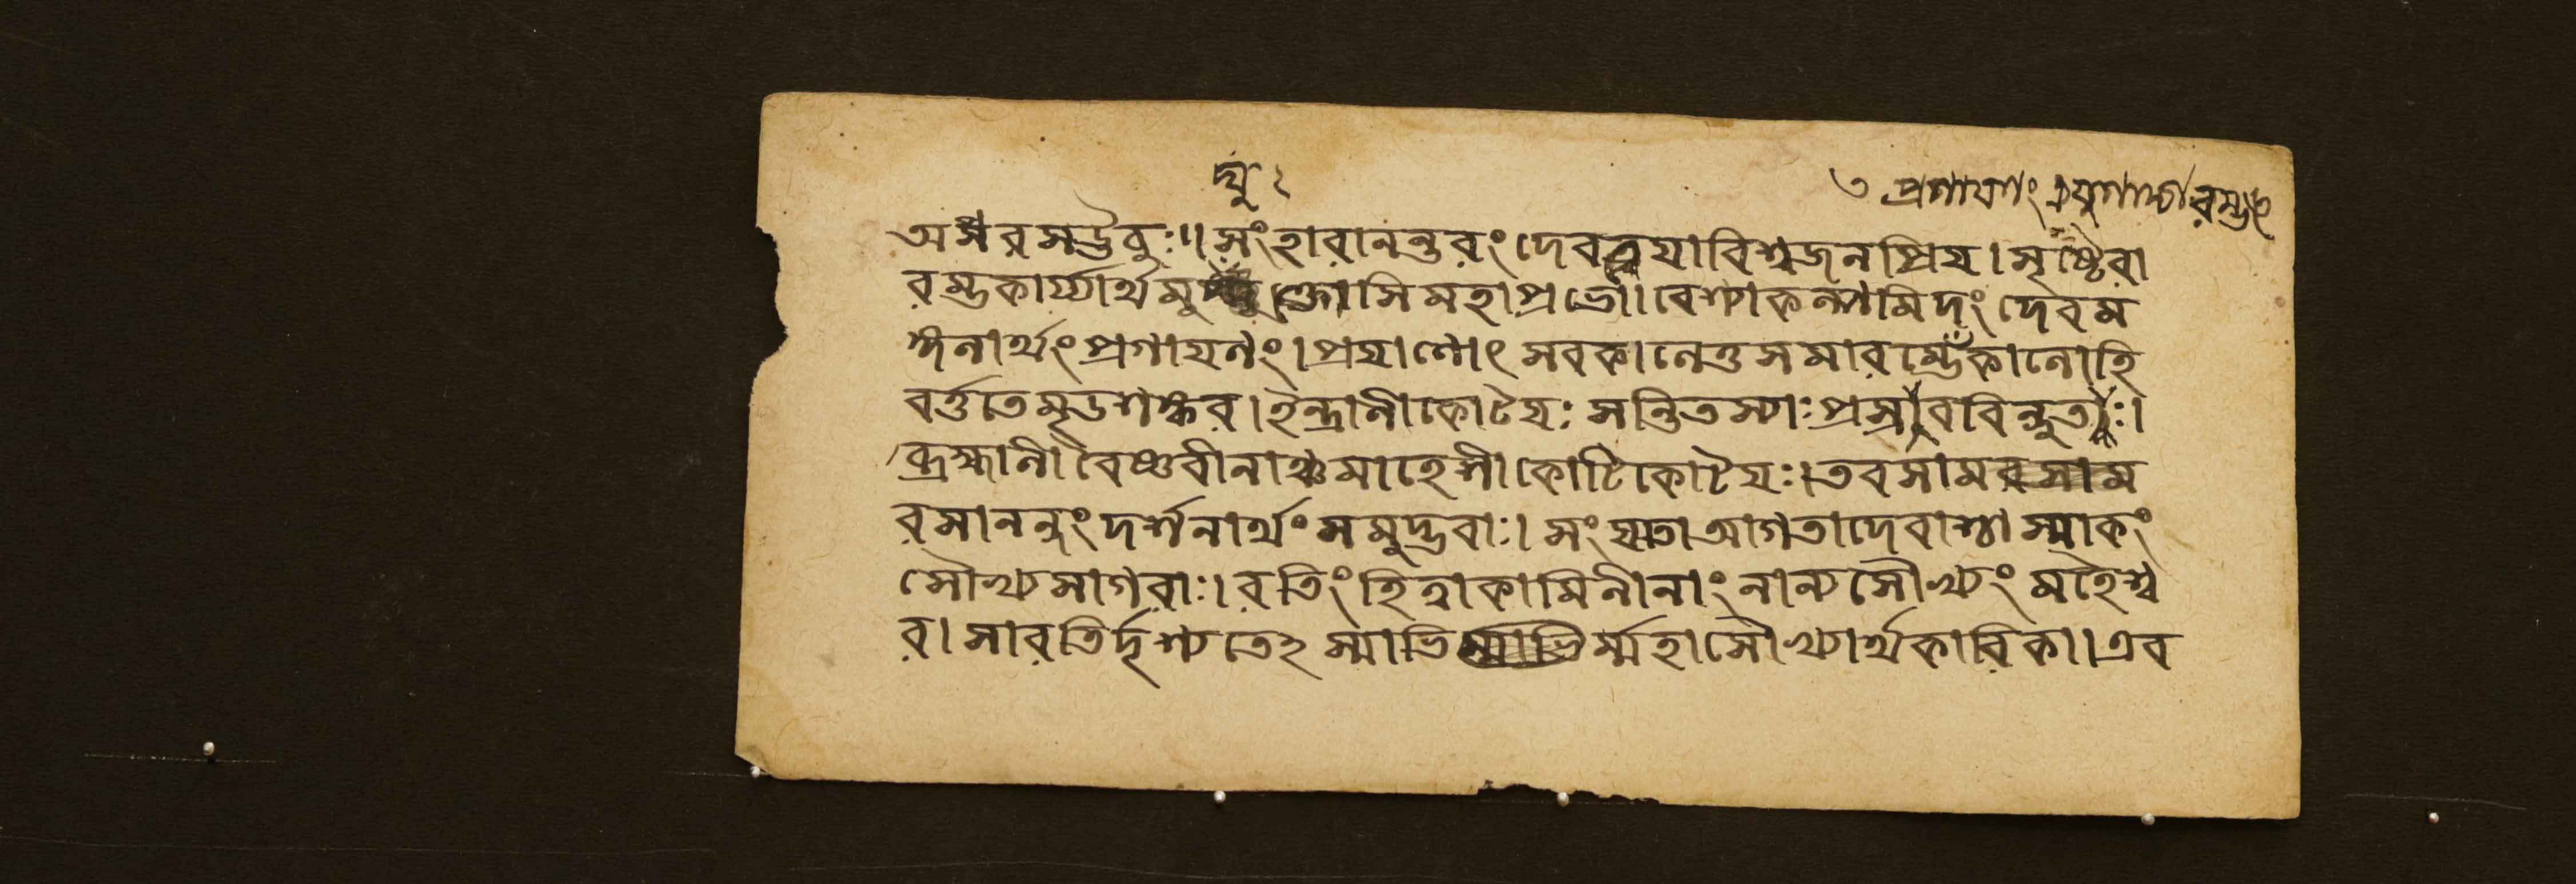 অপ্সরসউবুঃ।। সংহারানন্তরং দেবত্বযাবিশ্বজনপ্রিয। সৃষ্টেরা
রম্ভকার্য্যার্থমু ক্তোসি মহাপ্রভো। বেশ্যাকন্যামিদং দেবম
প্রগাযনং। প্রযাণো সবকালেতু সমারম্ভেঁকালোহি
বর্ত্ততে মৃডশঙ্কর। ইন্দ্রানীকোটযঃ সন্তিতস্যাঃ প্রস্রাববিন্দুতঃ।
ব্রহ্মানী বৈষ্ণবীনাঞ্চ মাহেশীকোটিকোটযঃ। তবসামরসাম
রসানন্দং দর্শনার্থং সমুদ্ভবাঃ। আগতাদেবাশ্বাস্মাকং
সৌখ্যসাগরাঃ। রতিং হিত্বাকামিনীনাং নান্যসৌখ্যং মহেশ্ব
র। সারতির্দৃশ্যতেঽস্মাভির্ম্মহাসৌখ্যার্থকারিকা। এব